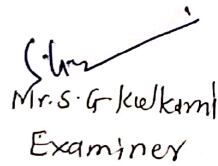 Mr. S. G Kulkarni
Examiner